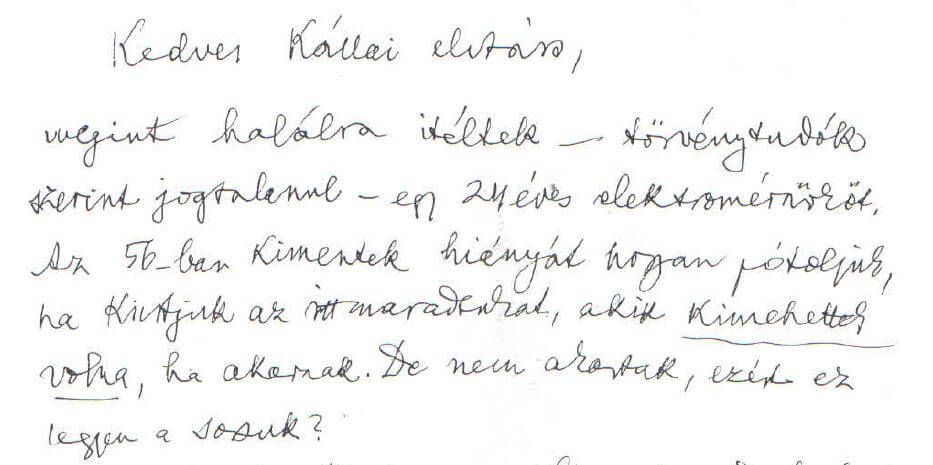 Kedves Kállai elvtárs,
megint halálra itéltek – törvénytudók
szerint jogtalanul – egy 24 éves elektromérnököt.
Az 56-ban Kimentek hiányát hogyan pótoljuk,
ha Kiirtjuk az itt maradtakat, akik Kimehettek
volna, ha akarnak. De nem akartak, ezért ez
legyen a sorsuk?